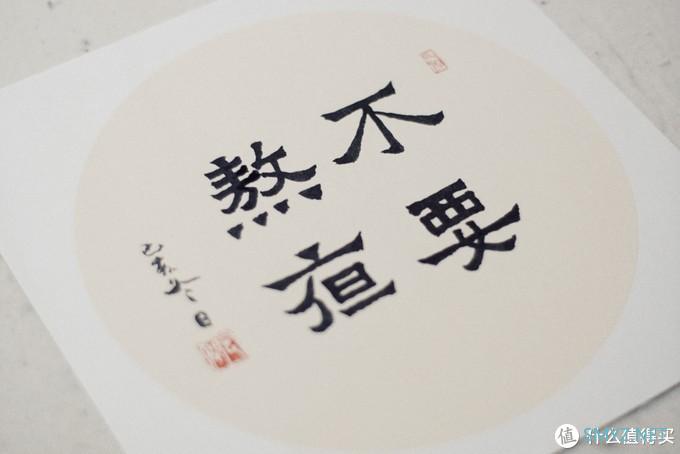 不要
熬夜
己亥冬日
值 什么值得买